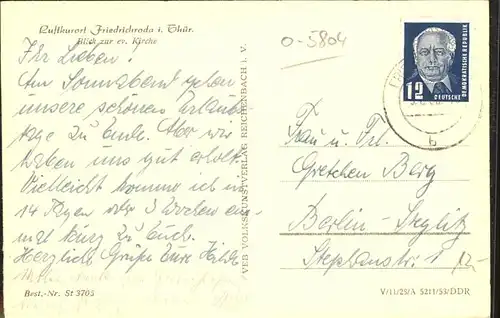 Luftkurort Friedrichroda i. Thür.
Blick zur ev. Kirche
Ihr Lieben!
Am Sonnabend gehen
unsere schönen Urlaubs
tage zu Ende. Aber wir
haben uns gut erholt.
Vielleicht komme ich in
14 Tagen oder 3 Wochen ein-
mal kurz zu Euch.
Herzliche Grüße Eure
Best.-Nr. St 3705
VEB VOLKSKUNSTVERLAG REICHENBACH i. V.
0-5804
12
DEUTSCHE
DEMOKRATISCHE REPUBLIK
b
Frau u. Frl.
Gretchen Berg
Berlin-Steglitz
Stephanstr. 12
V/11/28/A 5211/53/DDR